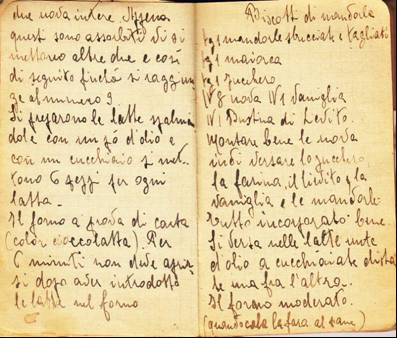 due uova intere. Appena
questi sono assorbiti di si
mettono altre due e così
di seguito finché si raggiun
ge al numero 9
Si preparono le latte spalman
dole con un pó d'olio e
con un cucchiaio si met-
tono 6 pezzi per ogni
latta -
Il forno a prova di carta
(color cioccolatta). Per
6 minuti non deve aprir
si dopo aver introdotto
le latte nel forno
Biscotti di mandorla
Kg 1 mandorle sbucciate e tagliate
Kg 1 maiorca
Kg 1 zucchero
N 8 uova N 1 vaniglia
N 1 Bustina di Lievito.
Montare bene le uova
indi versare lo zucchero,
la farina, il lievito, la
vaniglia e le mandorle
tutto incorporato bene.
Si versa nelle latte unte
d'olio a cucchiaiate dista
te una fra l'altra.
Il forno moderato.
(quando cala la fara al pane)